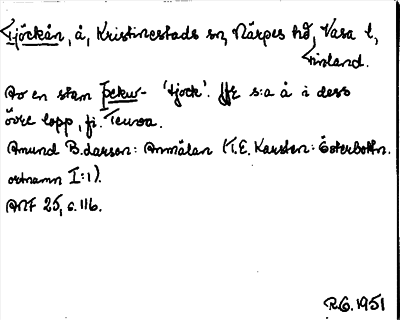 Tjöckån, å, Kristinestads sn, Närpes hd, Vasa l,
Finland.
Av en stam þekw- 'tjock'. Jfr s:a å i dess
övre lopp, fi. Teuva.
Amund B. Larson: Anmälan (T.E. Karsten: Österbottn.
ortnamn I:1).
ANF 25, s. 116.
R.G. 1951